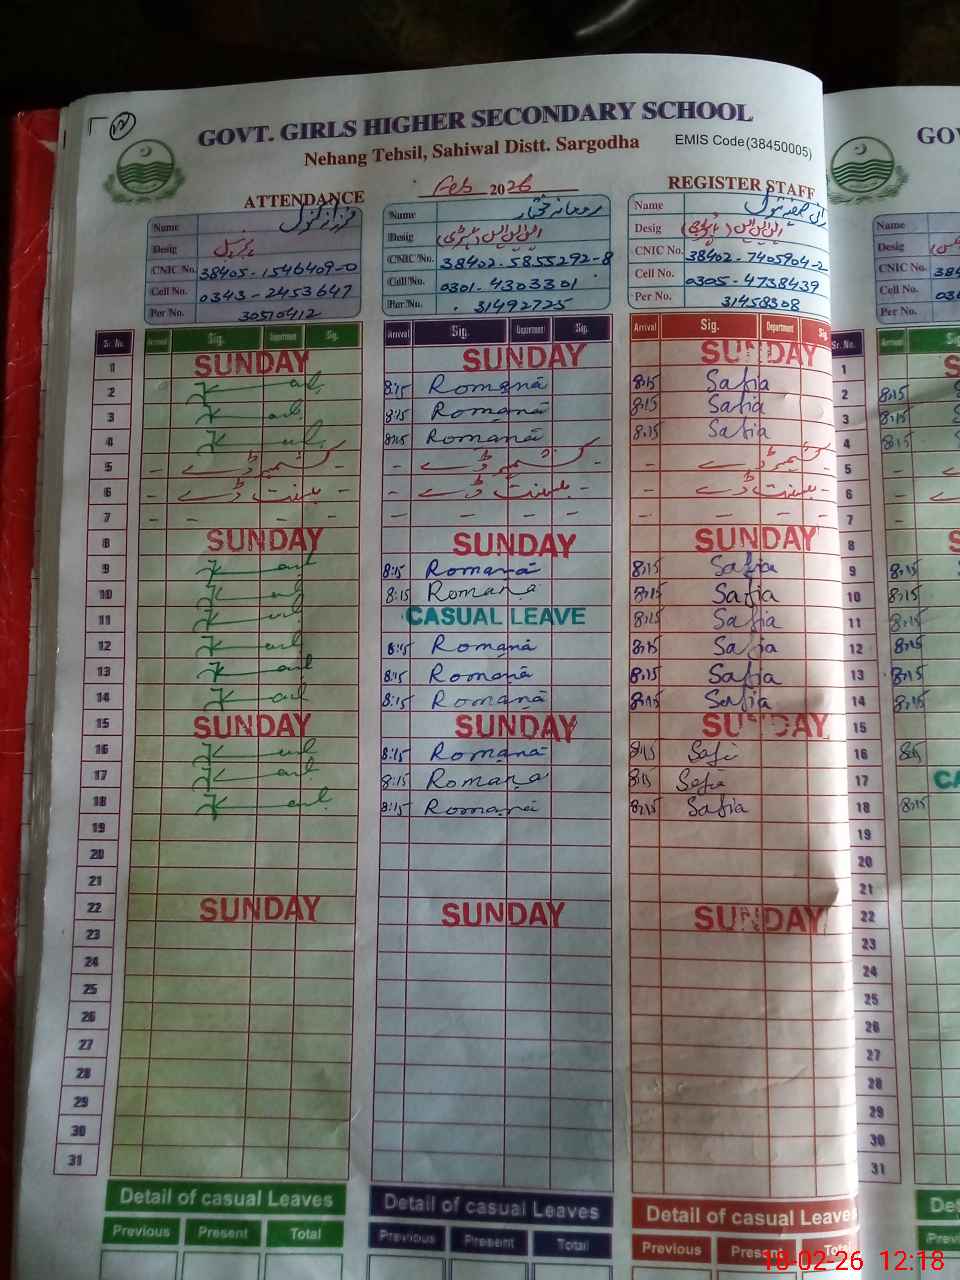 GOVT. GIRLS HIGHER SECONDARY SCHOOL
GOV
Nehang Tehsil, Sahiwal Distt. Sargodha
EMIS Code(38450005)
ATTENDANCE Feb 2026 REGISTER STAFF
Name
Desig پرنسپل
CNIC No. 38405-1546409-0
Cell No. 0343-2453647
Per No. 30510412
Name رومانہ مختار
Desig
CNIC No. 38402-5855292-8
Cell No. 0301-4303301
Per No. 31492725
Name
Desig
CNIC No. 38402-7405904-2
Cell No. 0305-4738439
Per No. 31458308
Name
Desig
CNIC No. 384
Cell No. 030
Per No.
Sr. No. Arrival Sig. Department Sig. Arrival Sig. Department Sig. Arrival Sig. Department Sig. Sr. No. Arrival
1 SUNDAY SUNDAY SUNDAY 1
2 8:15 Romana 8:15 Safia 2 8:15
3 8:15 Romana 8:15 Safia 3 8:15
4 8:15 Romana 8:15 Safia 4 8:15
5 - کشمیر ڈے - - کشمیر ڈے - - کشمیر ڈے 5 -
6 - بسنت ڈے - - بسنت ڈے - - بسنت ڈے - 6 -
7 - - - - - - - - - - - 7 -
8 SUNDAY SUNDAY SUNDAY 8
9 8:15 Romana 8:15 Safia 9 8:15
10 8:15 Romana 8:15 Safia 10 8:15
11 CASUAL LEAVE 8:15 Safia 11 8:15
12 8:15 Romana 8:15 Safia 12 8:15
13 8:15 Romana 8:15 Safia 13 8:15
14 8:15 Romana 8:15 Safia 14 8:15
15 SUNDAY SUNDAY SUNDAY 15
16 8:15 Romana 8:15 Safi 16 8:15
17 8:15 Romana 8:15 Safia 17 CA
18 8:15 Romana 8:15 Safia 18 8:15
19 19
20 20
21 21
22 SUNDAY SUNDAY SUNDAY 22
23 23
24 24
25 25
26 26
27 27
28 28
29 29
30 30
31 31
Detail of casual Leaves Detail of casual Leaves Detail of casual Leaves Det
Previous Present Total Previous Present Total Previous Present Total Previ
18-02-26 12:18